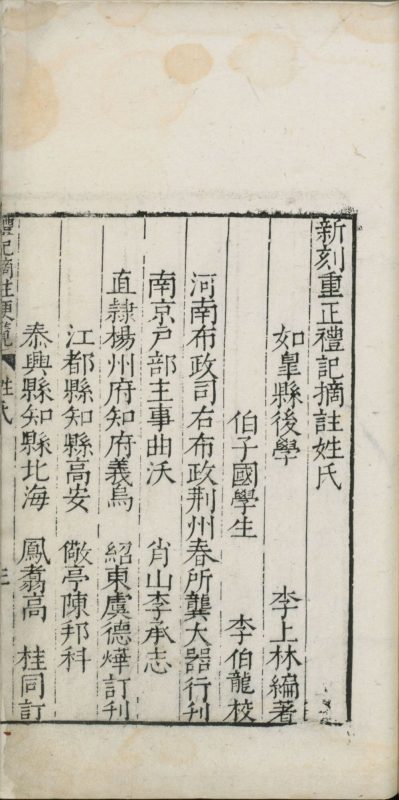 新刻重正禮記摘註姓氏
如皐縣後學 李上林編著
伯子國學生 李伯龍校
河南布政司右布政荆州春所龔大器行刋
南京戶部主事曲沃 肖山李承志
直隸楊州府知府義烏 紹東虞德燁訂刋
江都縣知縣高安 儆亭陳邦科
泰興縣知縣北海 鳳翥高 桂同訂
禮記摘註便覽 姓氏